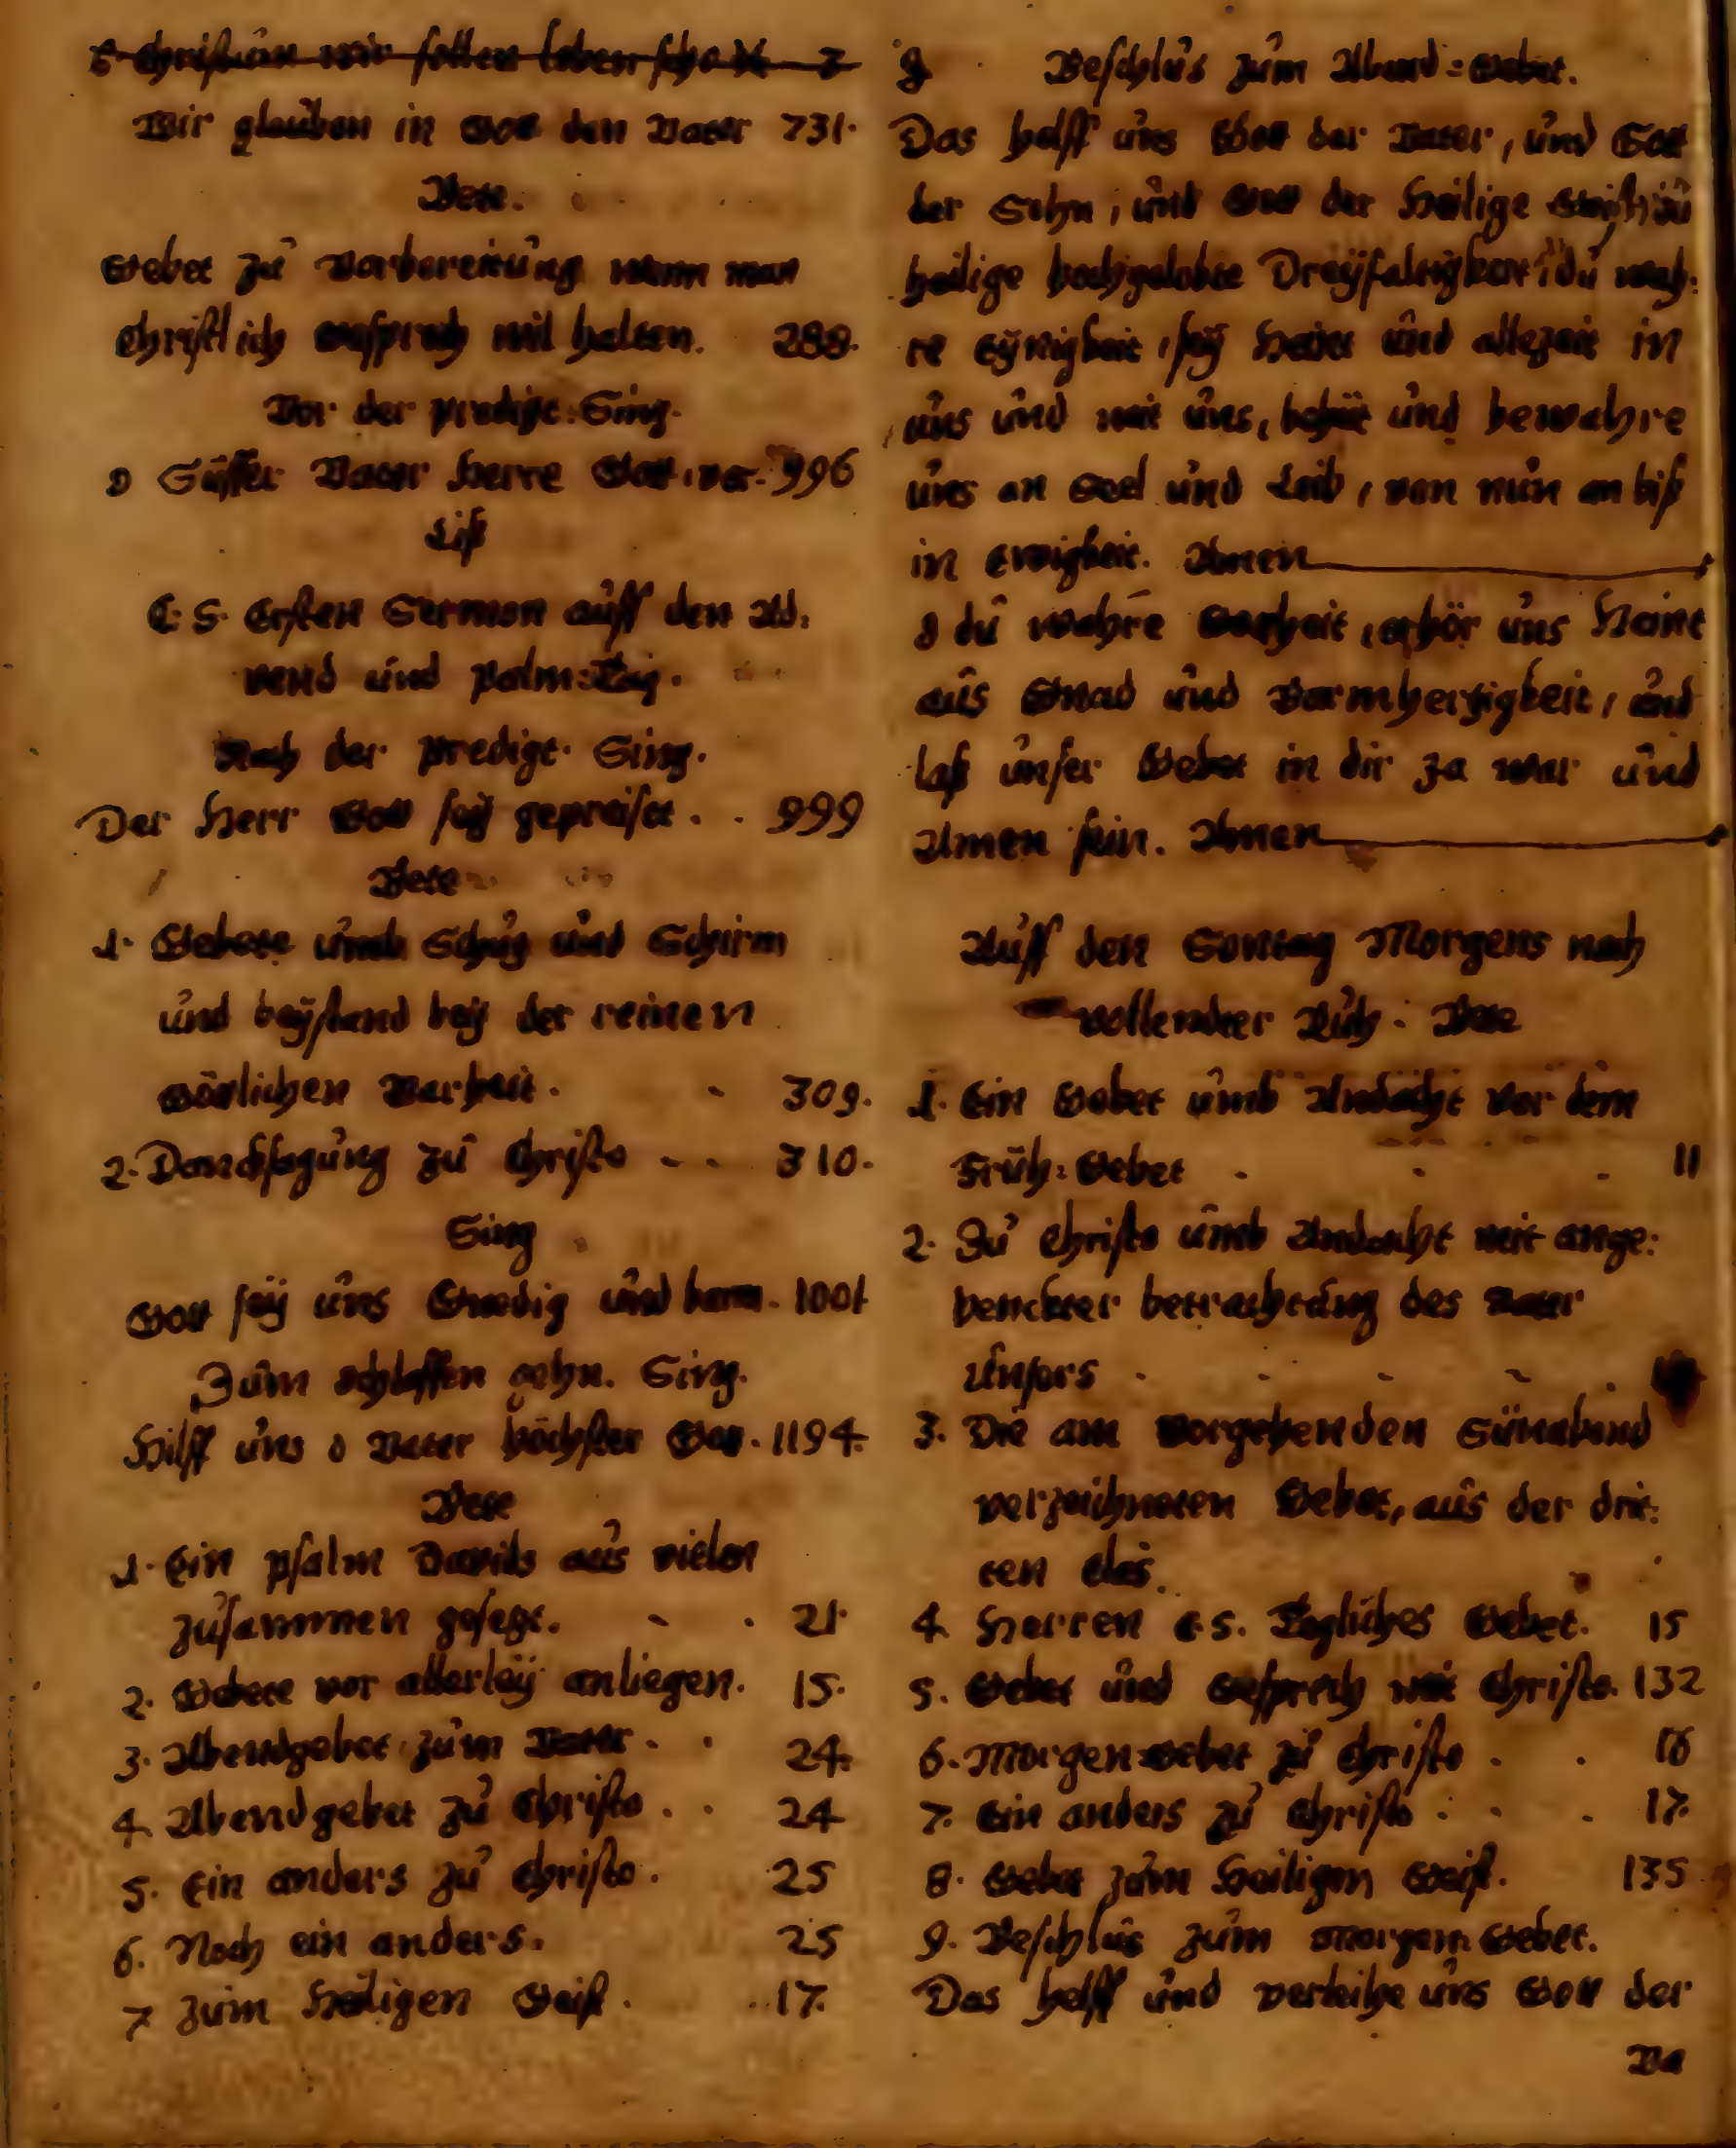 Christum wir sollen loben scho
Wir glauben in Gott den Vater 731.
Bete.
Gebet zu Vorbereitung wann man
Christlich Gesprech wil halten. 288.
Vor der predigt. Sing.
O Süsser Vater Herre Gott, ver. 996
Liß
C. S. Ersten Sermon auff den Ad:
vend und Palm:Tag.
Nach der predigt. Sing.
Der Herr Gott sey gepreiset. . 999
Bete
1. Gebete umb Schuz und Schirm
und beystand bey der reinen
Götlichen Warheit. 309.
2. Dancksagung zu Christo . . 310.
Sing
Gott sey uns Gnedig und barm. 1001
Zum schlaffen gehn. Sing.
Hilff uns o Vater höchster Gott. 1194.
Bete
1. Ein psalm Davids aus vielen
zusammen gesezt. . 21.
2. Gebete vor allerley anliegen. 15.
3. Abendgebet zum Vater . . 24.
4. Abendgebet zu Christo . . 24
5. Ein anders zu Christo. 25
6. Noch ein anders. 25
7 zum Heiligen Geist. 17.
8 Beschlus zum Abend:Gebet.
Das helff uns Gott der Vater, und Gott
der Sohn, und Gott der Heilige Geist, du
heilige hochgelobte Dreyfaltigkeit, du wah:
re Eynigkeit, sey Heint und allezeit in
uns und mit uns, behüt und bewahre
uns an Seel und Leib, von nun an biß
in Ewigkeit. Amen
O du wahre Gotheit, erhör uns Heint
aus Gnad und Barmhertzigkeit, und
laß unser Gebet in dir Ja war und
Amen sein. Amen
Auff den Sontag Morgens nach
vollendter Ruh. Bete
1. Ein Gebet umb Andacht vor dem
Früh:Gebet . . . 11
2. Zu Christo umb Andacht mit ange:
henckter betrachtung des Vater
Unsers . . . .
3. Die am Vorgehenden Sünabend
verzeichneten Gebet, aus der drit:
ten Clas.
4. Herren C. S. Tegliches Gebet. 15
5. Gebet und Gesprech mit Christo. 132
6. Morgen:Gebet zu Christo . . 16
7. Ein anders zu Christo . . . 17.
8. Gebet zum Heiligen Geist. 135
9. Beschlus zum Morgen:Gebet.
Das helff und verleihe uns Gott der
Va